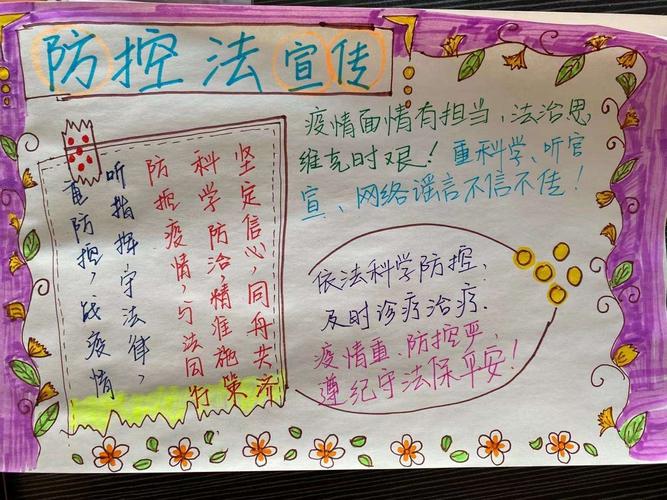 防控法宣传
坚定信心，同舟共济
科学防治，精准施策
防控疫情，与法同行
听指挥守法律，
重防控，战疫情
疫情面情有担当，法治思
维克时艰！重科学、听官
宣、网络谣言不信不传！
依法科学防控、
及时诊疗治疗.
疫情重、防控严，
遵纪守法保平安！